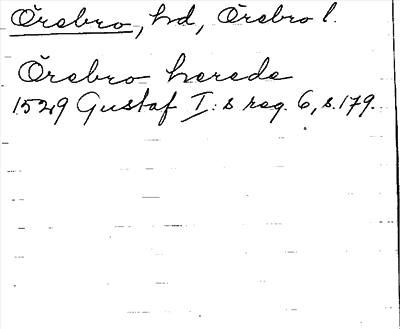 Örebro, hd, Örebro l.
Örebro herede
1529 Gustaf I:s reg. 6, s. 179.